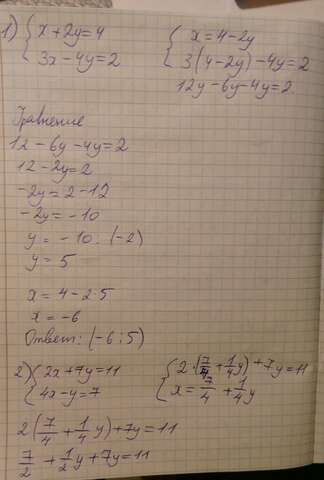 1) { x + 2y = 4 { x = 4 - 2y
3x - 4y = 2 3(4 - 2y) - 4y = 2
12y - 6y - 4y = 2.
Уравнение
12 - 6y - 4y = 2
12 - 2y = 2
-2y = 2 - 12
-2y = -10
y = -10 : (-2)
y = 5
x = 4 - 2·5
x = -6
Ответ: (-6 ; 5)
2) { 2x + 7y = 11 { 2·(7/4 + 1/4 y) + 7y = 11
4x - y = 7 x = 7/4 + 1/4 y
2(7/4 + 1/4 y) + 7y = 11
7/2 + 1/2 y + 7y = 11